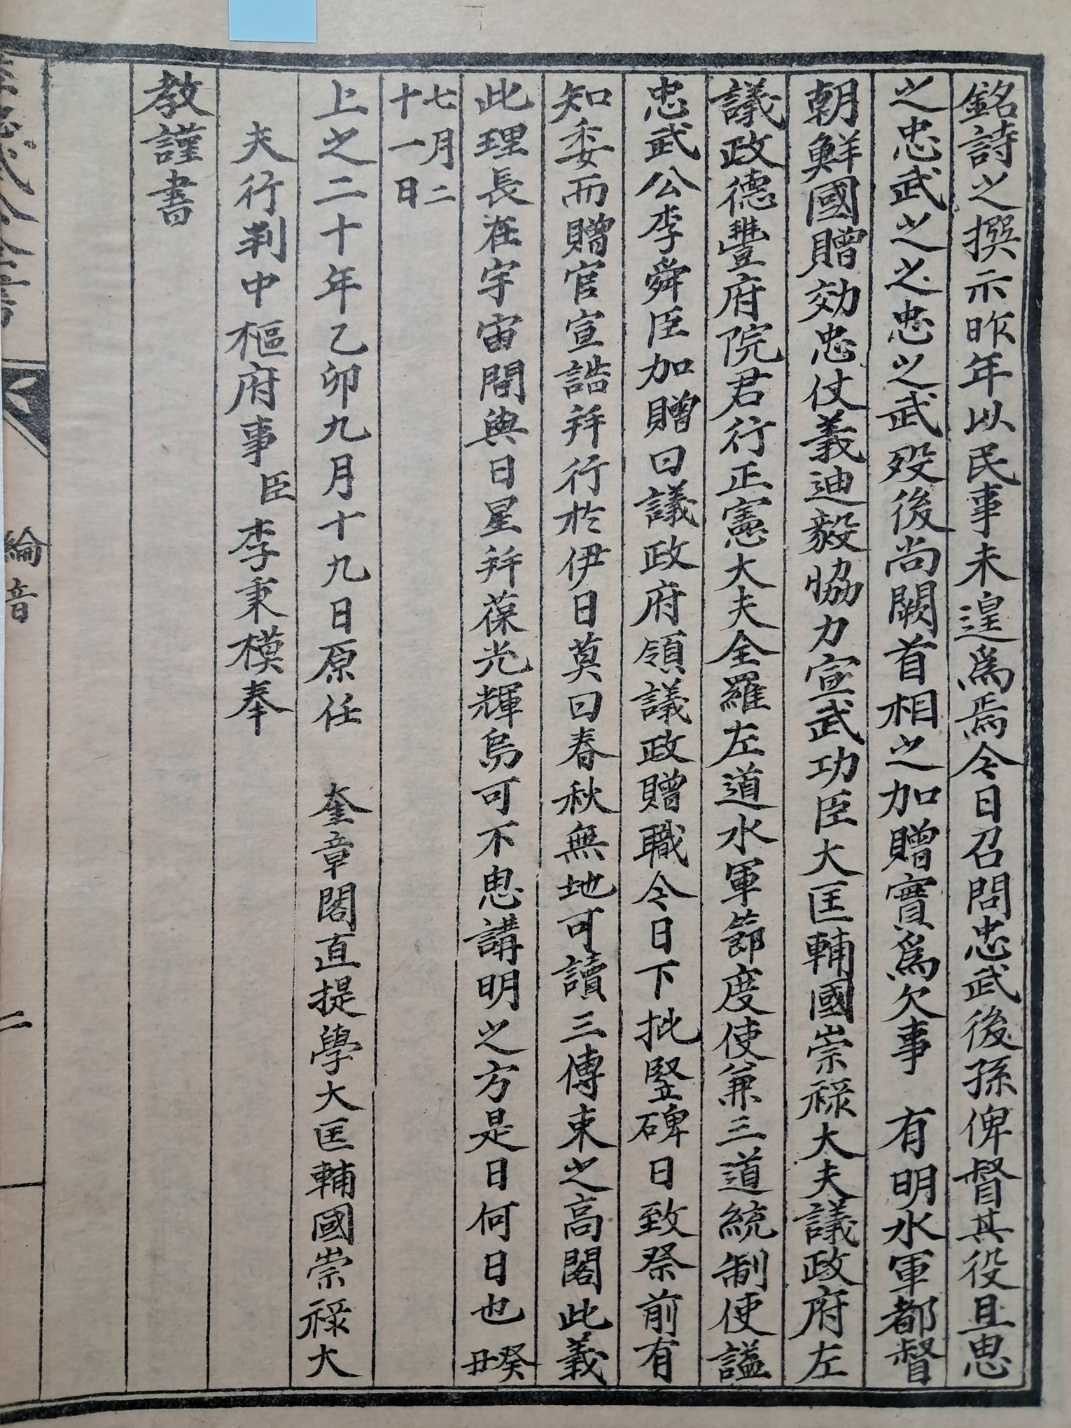 銘詩之撰示昨年以民事未遑爲焉今日召問忠武後孫俾督其役且思
之忠武之之忠之武歿後尚闕首相之加贈實爲欠事　有明水軍都督
朝鮮國贈効忠仗義迪毅恊力宣武功臣大匡輔國崇祿大夫議政府左
議政德豐府院君行正憲大夫全羅左道水軍節度使兼三道統制使謚
忠武公李舜臣加贈曰議政府領議政贈職今日下批竪碑日致祭前有
知委而贈官宣誥幷行於伊日莫曰春秋無地可讀三傳束之高閣此義
此理長在宇宙間與日星幷葆光輝烏可不思講明之方是日何日也 癸丑
七月二十一日
上之二十年乙卯九月十九日原任　奎章閣直提學大匡輔國崇祿大
夫行判中樞府事臣李秉模奉
教謹書
忠武公全書
綸音
二